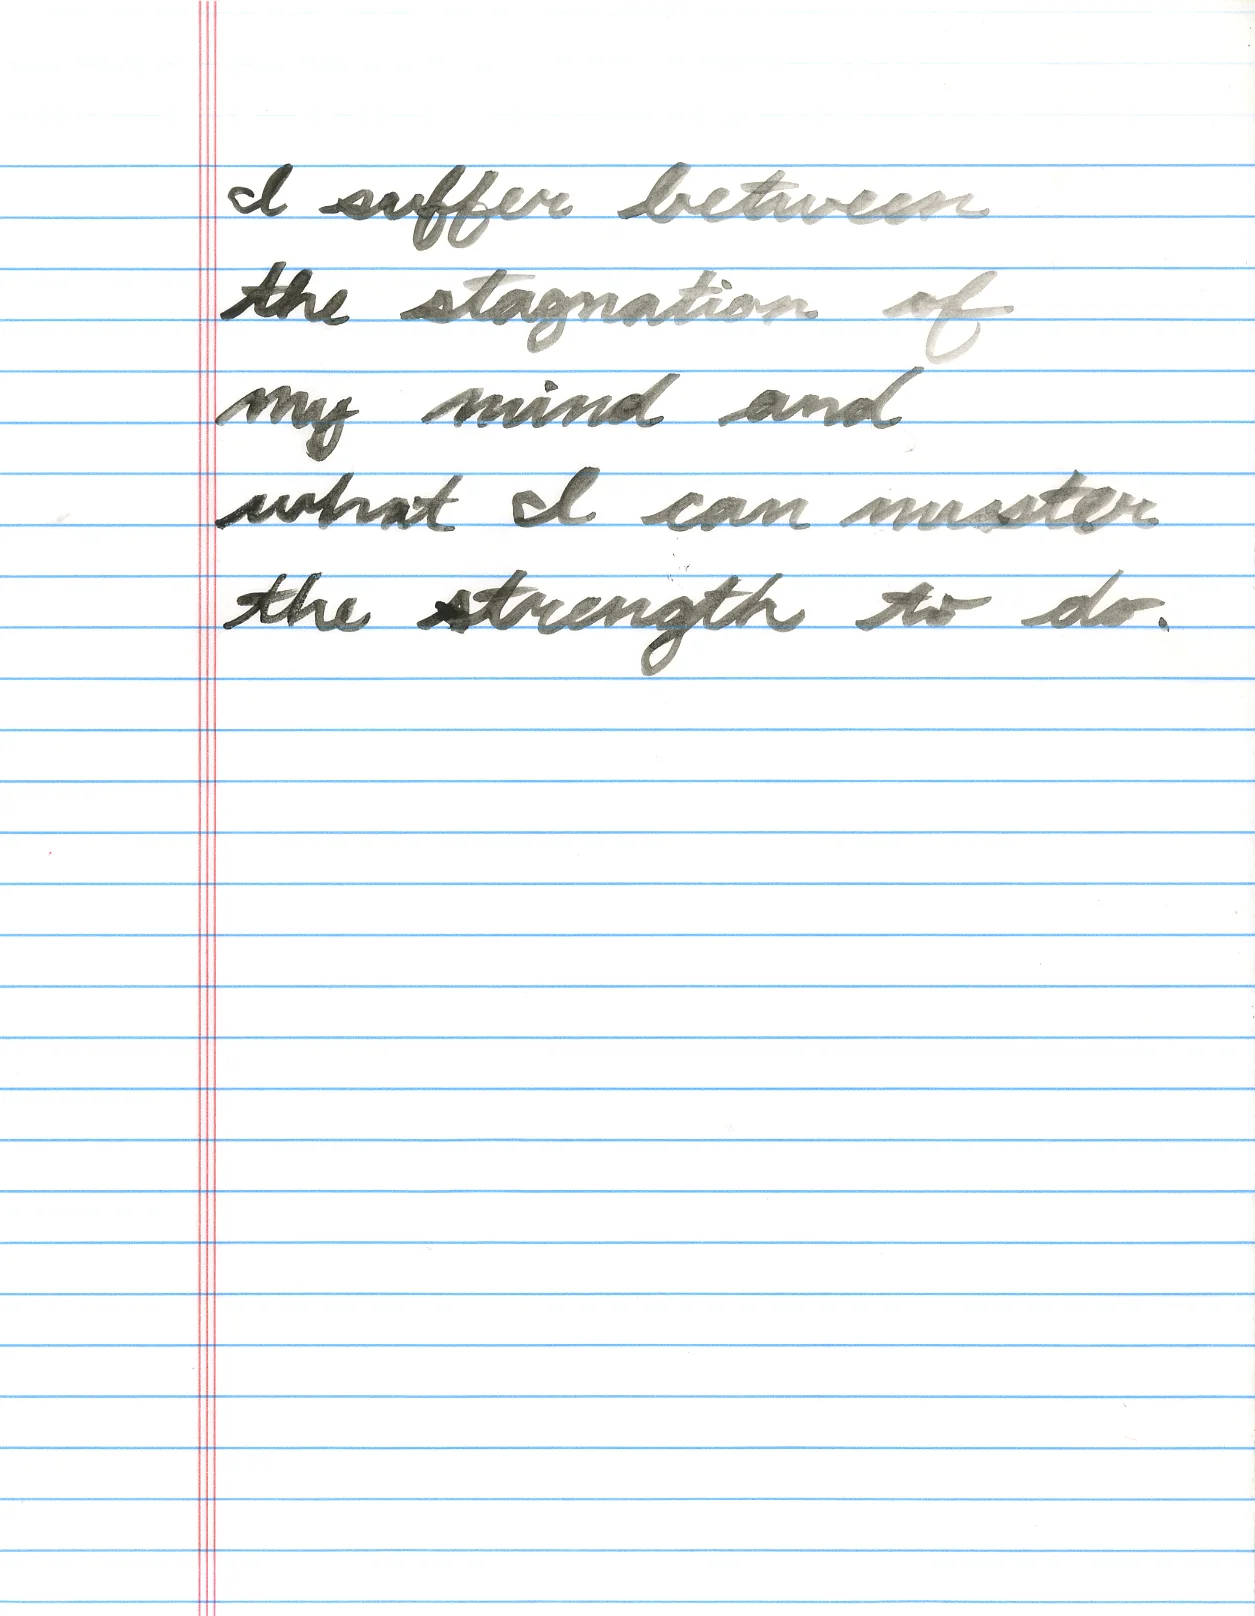 I suffer between
the stagnation of
my mind and
what I can muster
the strength to do.